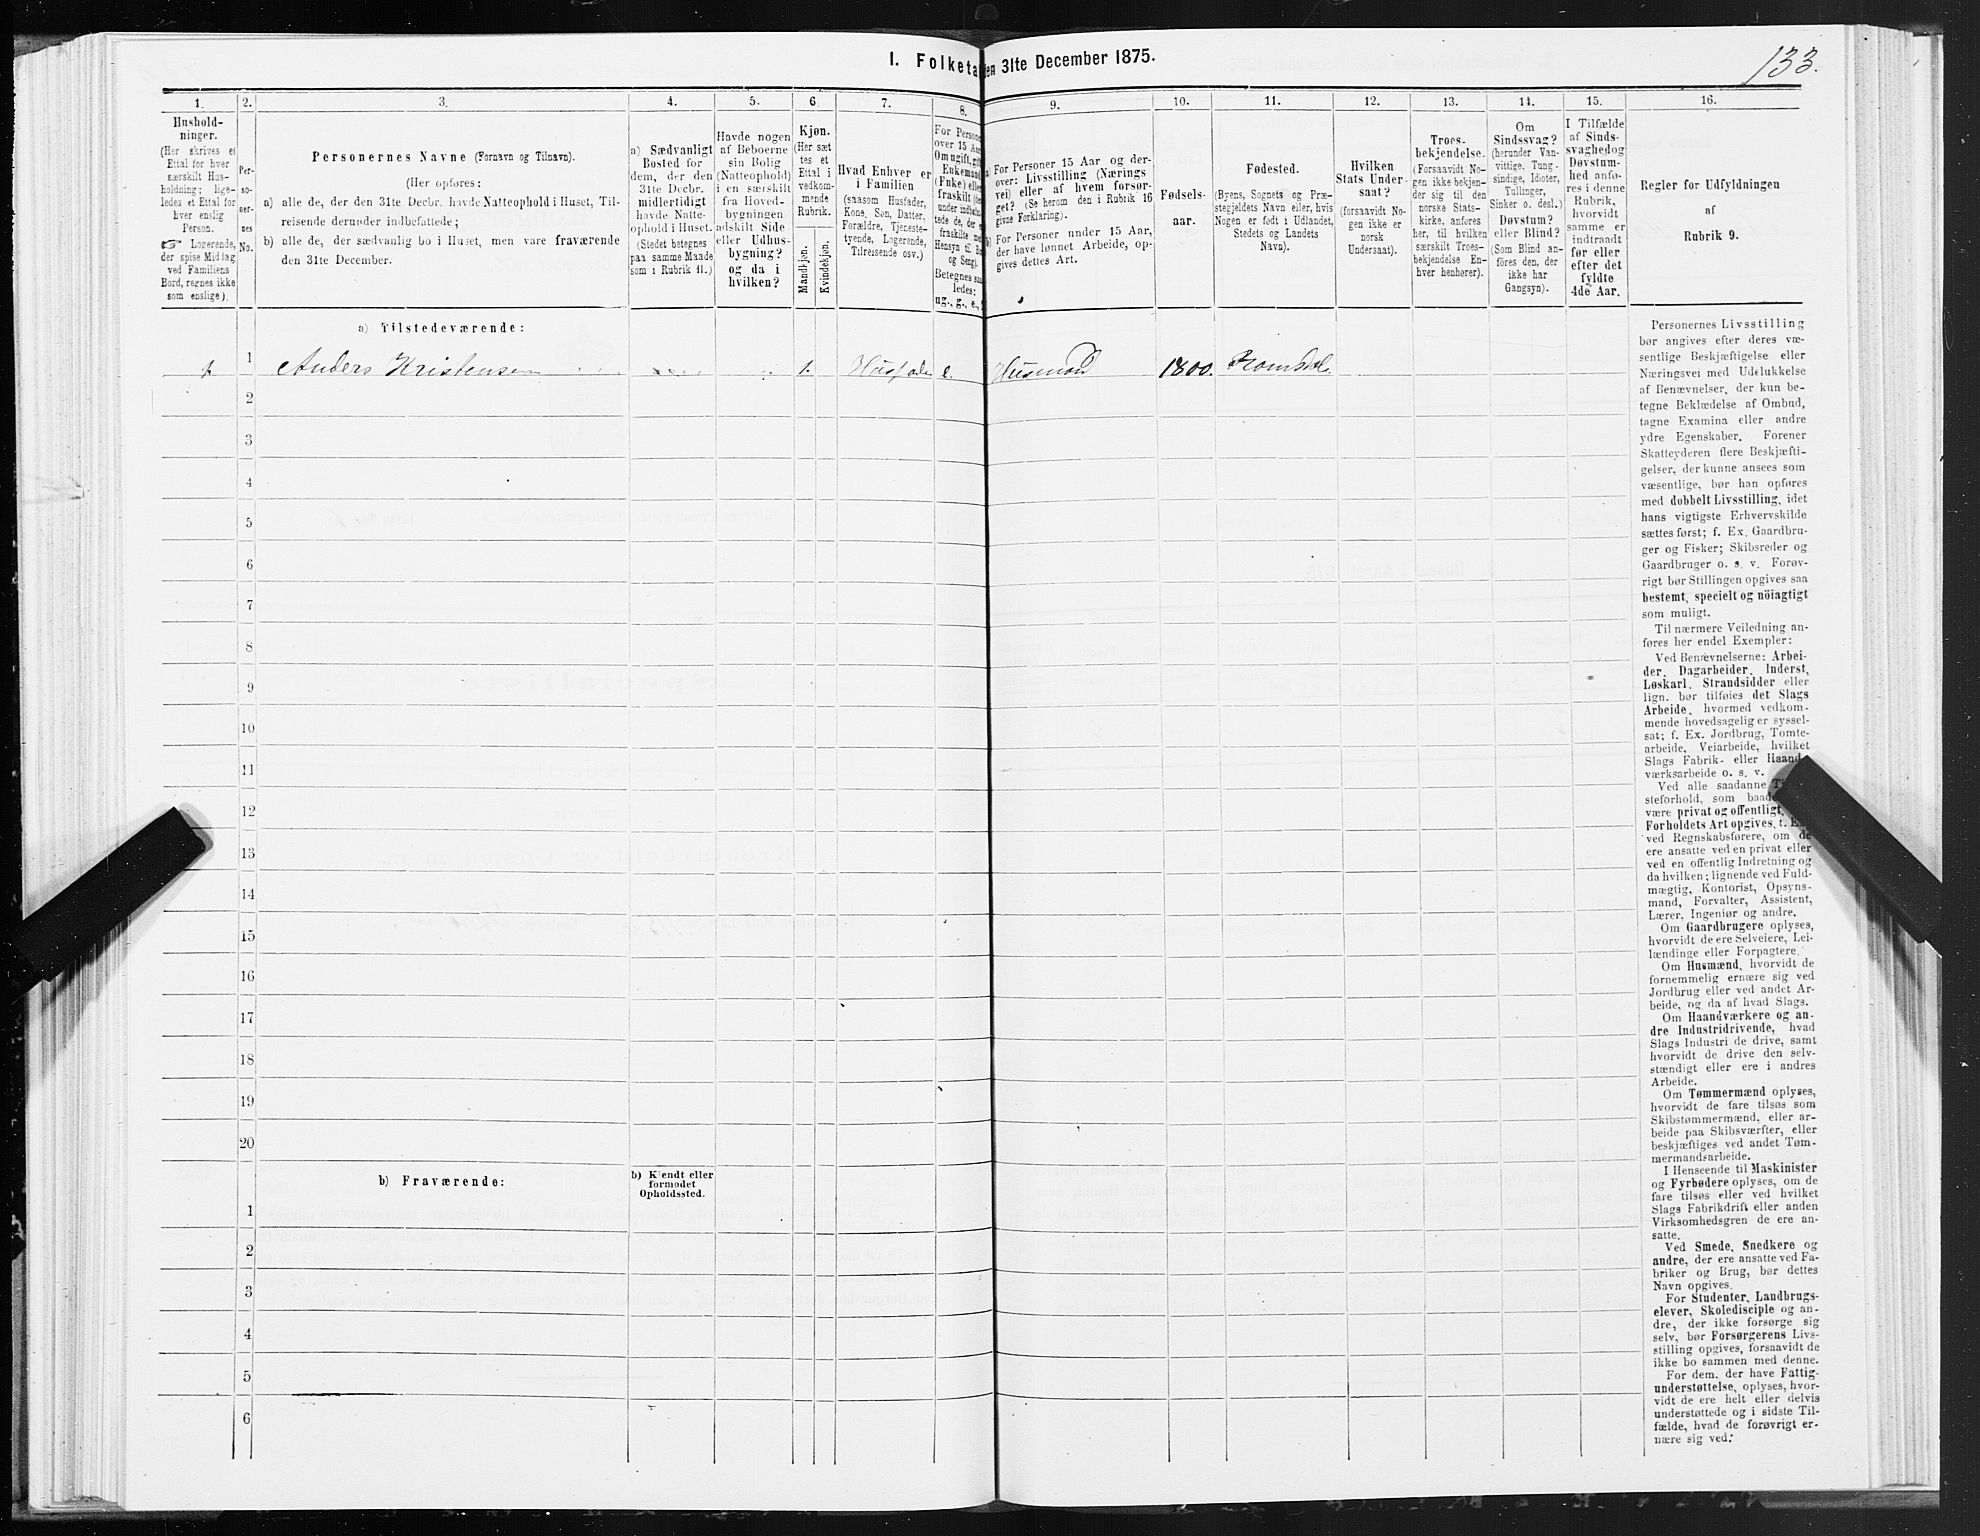 133.
1. Folketa en 31te December 1875.
1.
2.
3.
4.
5.
6
7.
8.
9.
10.
11.
12.
13.
14.
15.
16.
Hushold-
ninger.
(Her skrives et
Ettal for hver
særskilt Hus-
holdning; lige-
ledes et Ettal for
hver enslig
Person.
☞ Logerende,
der spise Middag
ved Familiens
Bord, regnes ikke
som enslige).
Per-
so-
ner-
nes
No.
Personernes Navne (Fornavn og Tilnavn).
(Her opføres:
a) alle de, der den 31te Decbr. havde Natteophold i Huset, Til-
reisende derunder indbefattede;
b) alle de, der sædvanlig bo i Huset, men vare fraværende
den 31te December.
a) Sædvanligt
Bosted for
dem, der den
31te Decbr.
midlertidigt
havde Natte-
ophold i Huset.
(Stedet betegnes
paa samme Maade
som i Rubrik 11.)
Havde nogen
af Beboerne
sin Bolig
(Natteophold)
i en særskilt
fra Hoved-
bygningen
adskilt Side-
eller Udhus-
bygning?
og da i
hvilken?
Kjøn.
(Her sæt
tes et
Ettal i
vedkom-
mende
Rubrik.
Mandkjøn.
Kvindekjøn.
Hvad Enhver er
i Familien
(saasom Husfader,
Kone, Søn, Datter,
Forældre, Tjeneste-
tyende, Logerende,
Tilreisende osv.)
For Persone
over 15 Aar
Om ugift, gift
Enkemand
(Enke) eller
fraskilt
under indbefat-
tede de, der e
fraskilte m
Hensyn til B
og Seng).
Betegnes saa
ledes:
ug., g., e.,
a) For Personer 15 Aar og der-
over: Livsstilling (Nærings
vei) eller af hvem forsør-
get? (Se herom den i Rubrik 16
givne Forklaring).
b) For Personer under 15 Aar,
der have lønnet Arbeide, op-
gives dettes Art.
Fødsels-
aar.
Fødested.
(Byens, Sognets og Præ-
stegjeldets Navn eller, hvis
Nogen er født i Udlandet,
Stedets og Landets
Navn).
Hvilken
Stats Under-
saat?
(forsaavidt No-
gen ikke er
norsk
Undersaat).
Troes-
bekjendelse.
(Forsaavidt No-
gen ikke bekjen-
der sig til den
norske Stats-
kirke, anføres
her, til hvilken
særskilt Troes-
bekjendelse En-
hver henhører).
Om
Sindssvag?
(herunder Van-
vittige, Tung-
sindige, Idioter,
Tullinger,
Sinker o. desl.)
Døvstum?
eller Blind?
(Som Blind an-
føres den, der
ikke har
Gangsyn).
I Tilfælde
af Sinds-
svaghed og
Døvstum-
hed anfø-
res i denne
Rubrik,
hvorvidt
samme er
indtraadt
før eller
efter det
fyldte
4de Aar.
Regler for Udfyldningen
af
Rubrik 9.
a) Tilstedeværende:
1 Anders Kristensen 1. e. Husmand 1800. Romsdal
2
3
4
5
6
7
8
9
10
11
12
13
14
15
16
17
18
19
20
b) Fraværende:
b) Kjendt eller
formodet
Opholdssted.
1
2
3
4
5
6
Personernes Livsstilling
bør angives efter deres væ-
sentlige Beskjæftigelse eller
Næringsvei med Udelukkelse
af Benævnelser, der kun be-
tegne Beklædelse af Ombud,
tagne Examina eller andre
ydre Egenskaber. Forener
Skatteyderen flere Beskjæfti-
gelser, der kunne ansees som
væsentlige, bør han opføres
med dobbelt Livsstilling, idet
hans vigtigste Erhvervskilde
sættes først; f. Ex. Gaardbru-
ger og Fisker; Skibsreder og
Gaardbruger o. s. v. Forøv-
rigt bør Stillingen opgives saa
bestemt, specielt og nöiagtigt
som muligt.
Til nærmere Veiledning an-
føres her endel Exempler:
Ved Benævnelserne: Arbei-
der, Dagarbeider, Inderst,
Løskarl, Strandsidder eller
lign. bør tilføies det Slags
Arbeide, hvormed vedkom-
mende hovedsagelig er syssel-
sat; f. Ex. Jordbrug, Tomte-
arbeide, Veiarbeide, hvilket
Slags Fabrik- eller Haand-
værksarbeide o. s. v.
Ved alle saadanne
steforhold, som baade
være privat og offentligt,
Forholdets Art opgives, t. Ex.
ved Regnskabsførere, om de
ere ansatte ved en privat eller
ved en offentlig Indretning og
da hvilken; lignende ved Fuld-
mægtig, Kontorist, Opsyns-
mand, Forvalter, Assistent,
Lærer, Ingeniør og andre.
Om Gaardbrugere oplyses,
hvorvidt de ere Selveiere, Lei-
lændinge eller Forpagtere.
Om Husmænd, hvorvidt de
fornemmelig ernære sig ved
Jordbrug eller ved andet Ar-
beide, og da af hvad Slags.
Om Haandværkere og an-
dre Industridrivende, hvad
Slags Industri de drive, samt
hvorvidt de drive den selv-
stændigt eller ere i andres
Arbeide.
Om Tømmermænd oplyses,
hvorvidt de fare tilsøs som
Skibstømmermænd, eller ar-
beide paa Skibsværfter, eller
beskjæftiges ved andet Tøm-
mermandsarbeide.
I Henseende til Maskinister
og Fyrbødere oplyses, om de
fare tilsøs eller ved hvilket
Slags Fabrikdrift eller anden
Virksomhedsgren de ere an-
satte.
Ved Smede, Snedkere og
andre, der ere ansatte ved Fa-
briker og Brug, bør dettes
Navn opgives.
For Studenter, Landbrugs-
elever, Skoledisciple og an-
dre, der ikke forsørge sig
selv, bør Forsørgerens Livs-
stilling opgives, forsaavidt de
ikke bo sammen med denne.
For dem, der have Fattig-
understøttelse, oplyses, hvor-
vidt de ere helt eller delvis
understøttede og i sidste Til-
fælde, hvad de forøvrigt er-
nære sig ved.